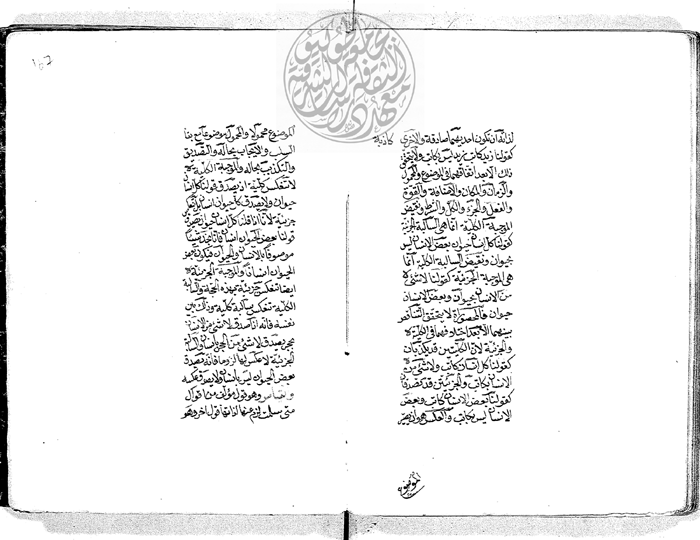 ١٠٧
لذاته ان تكون احديهما صادقة والاخرى كاذبة
كقولنا زيد كاتب زيد ليس بكاتب ولا يتحقق
ذلك الا بعد اتفاقهما في الموضوع والمحمول
والزمان والمكان والاضافة والقوة
والفعل والجزء والكل والشرط ونقيض
الموجبة الكلية انما هي السالبة الجزئية
كقولنا كل انسان حيوان بعض الانسان ليس
بحيوان ونقيض السالبة الكلية انما
هي الموجبة الجزئية كقولنا لا شيء
من الانسان بحيوان وبعض الانسان
حيوان فالمحصورات لا يتحقق التناقض
بينهما الا بعد اختلافهما في الكلية
والجزئية لان الكليتين قد يكذبان
كقولنا كل انسان كاتب ولا شيء من
الانسان بكاتب والجزئيتين قد تصدقان
كقولنا بعض الانسان كاتب وبعض
الانسان ليس بكاتب والعكس هو ان يصير
الموضوع
الموضوع محمولا والمحمول موضوعا مع بقاء
السلب والايجاب بحاله والتصديق
والتكذيب بحاله والموجبة الكلية
لا تنعكس كلية اذ يصدق قولنا كل انسان
حيوان ولا يصدق كل حيوان انسان بل تنعكس
جزئية لانا اذا قلنا كل انسان حيوان يصدق
قولنا بعض الحيوان انسان فانا نجد شيئا
موصوفا بالانسان والحيوان فيكون بعض
الحيوان انسانا والموجبة الجزئية
ايضا تنعكس جزئية بهذه الحجة والسالبة
الكلية تنعكس سالبة كلية وذلك بين
نفسه فانه اذا صدق لا شيء من الانسان
بحجر صدق لا شيء من الحجر بانسان والسالبة
الجزئية لا عكس لها لزوما فانه يصدق
بعض الحيوان ليس بانسان ولا يصدق عكسه
وهو قول مؤلف من اقوال
متى سلمت لزم عنها لذاتها قول اخر وهو